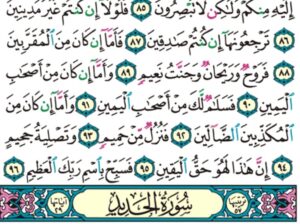 إِلَيْهِ مِنكُمْ وَلَٰكِن لَّا تُبْصِرُونَ ٨٥ فَلَوْلَا إِن كُنتُمْ غَيْرَ مَدِينِينَ
٨٦ تَرْجِعُونَهَا إِن كُنتُمْ صَٰدِقِينَ ٨٧ فَأَمَّا إِن كَانَ مِنَ الْمُقَرَّبِينَ
٨٨ فَرَوْحٌ وَرَيْحَانٌ وَجَنَّتُ نَعِيمٍ ٨٩ وَأَمَّا إِن كَانَ مِنْ أَصْحَٰبِ
الْيَمِينِ ٩٠ فَسَلَٰمٌ لَّكَ مِنْ أَصْحَٰبِ الْيَمِينِ ٩١ وَأَمَّا إِن كَانَ مِنَ
الْمُكَذِّبِينَ الضَّالِّينَ ٩٢ فَنُزُلٌ مِّنْ حَمِيمٍ ٩٣ وَتَصْلِيَةُ جَحِيمٍ
٩٤ إِنَّ هَٰذَا لَهُوَ حَقُّ الْيَقِينِ ٩٥ فَسَبِّحْ بِاسْمِ رَبِّكَ الْعَظِيمِ ٩٦
سُورَةُ الْحَدِيدِ